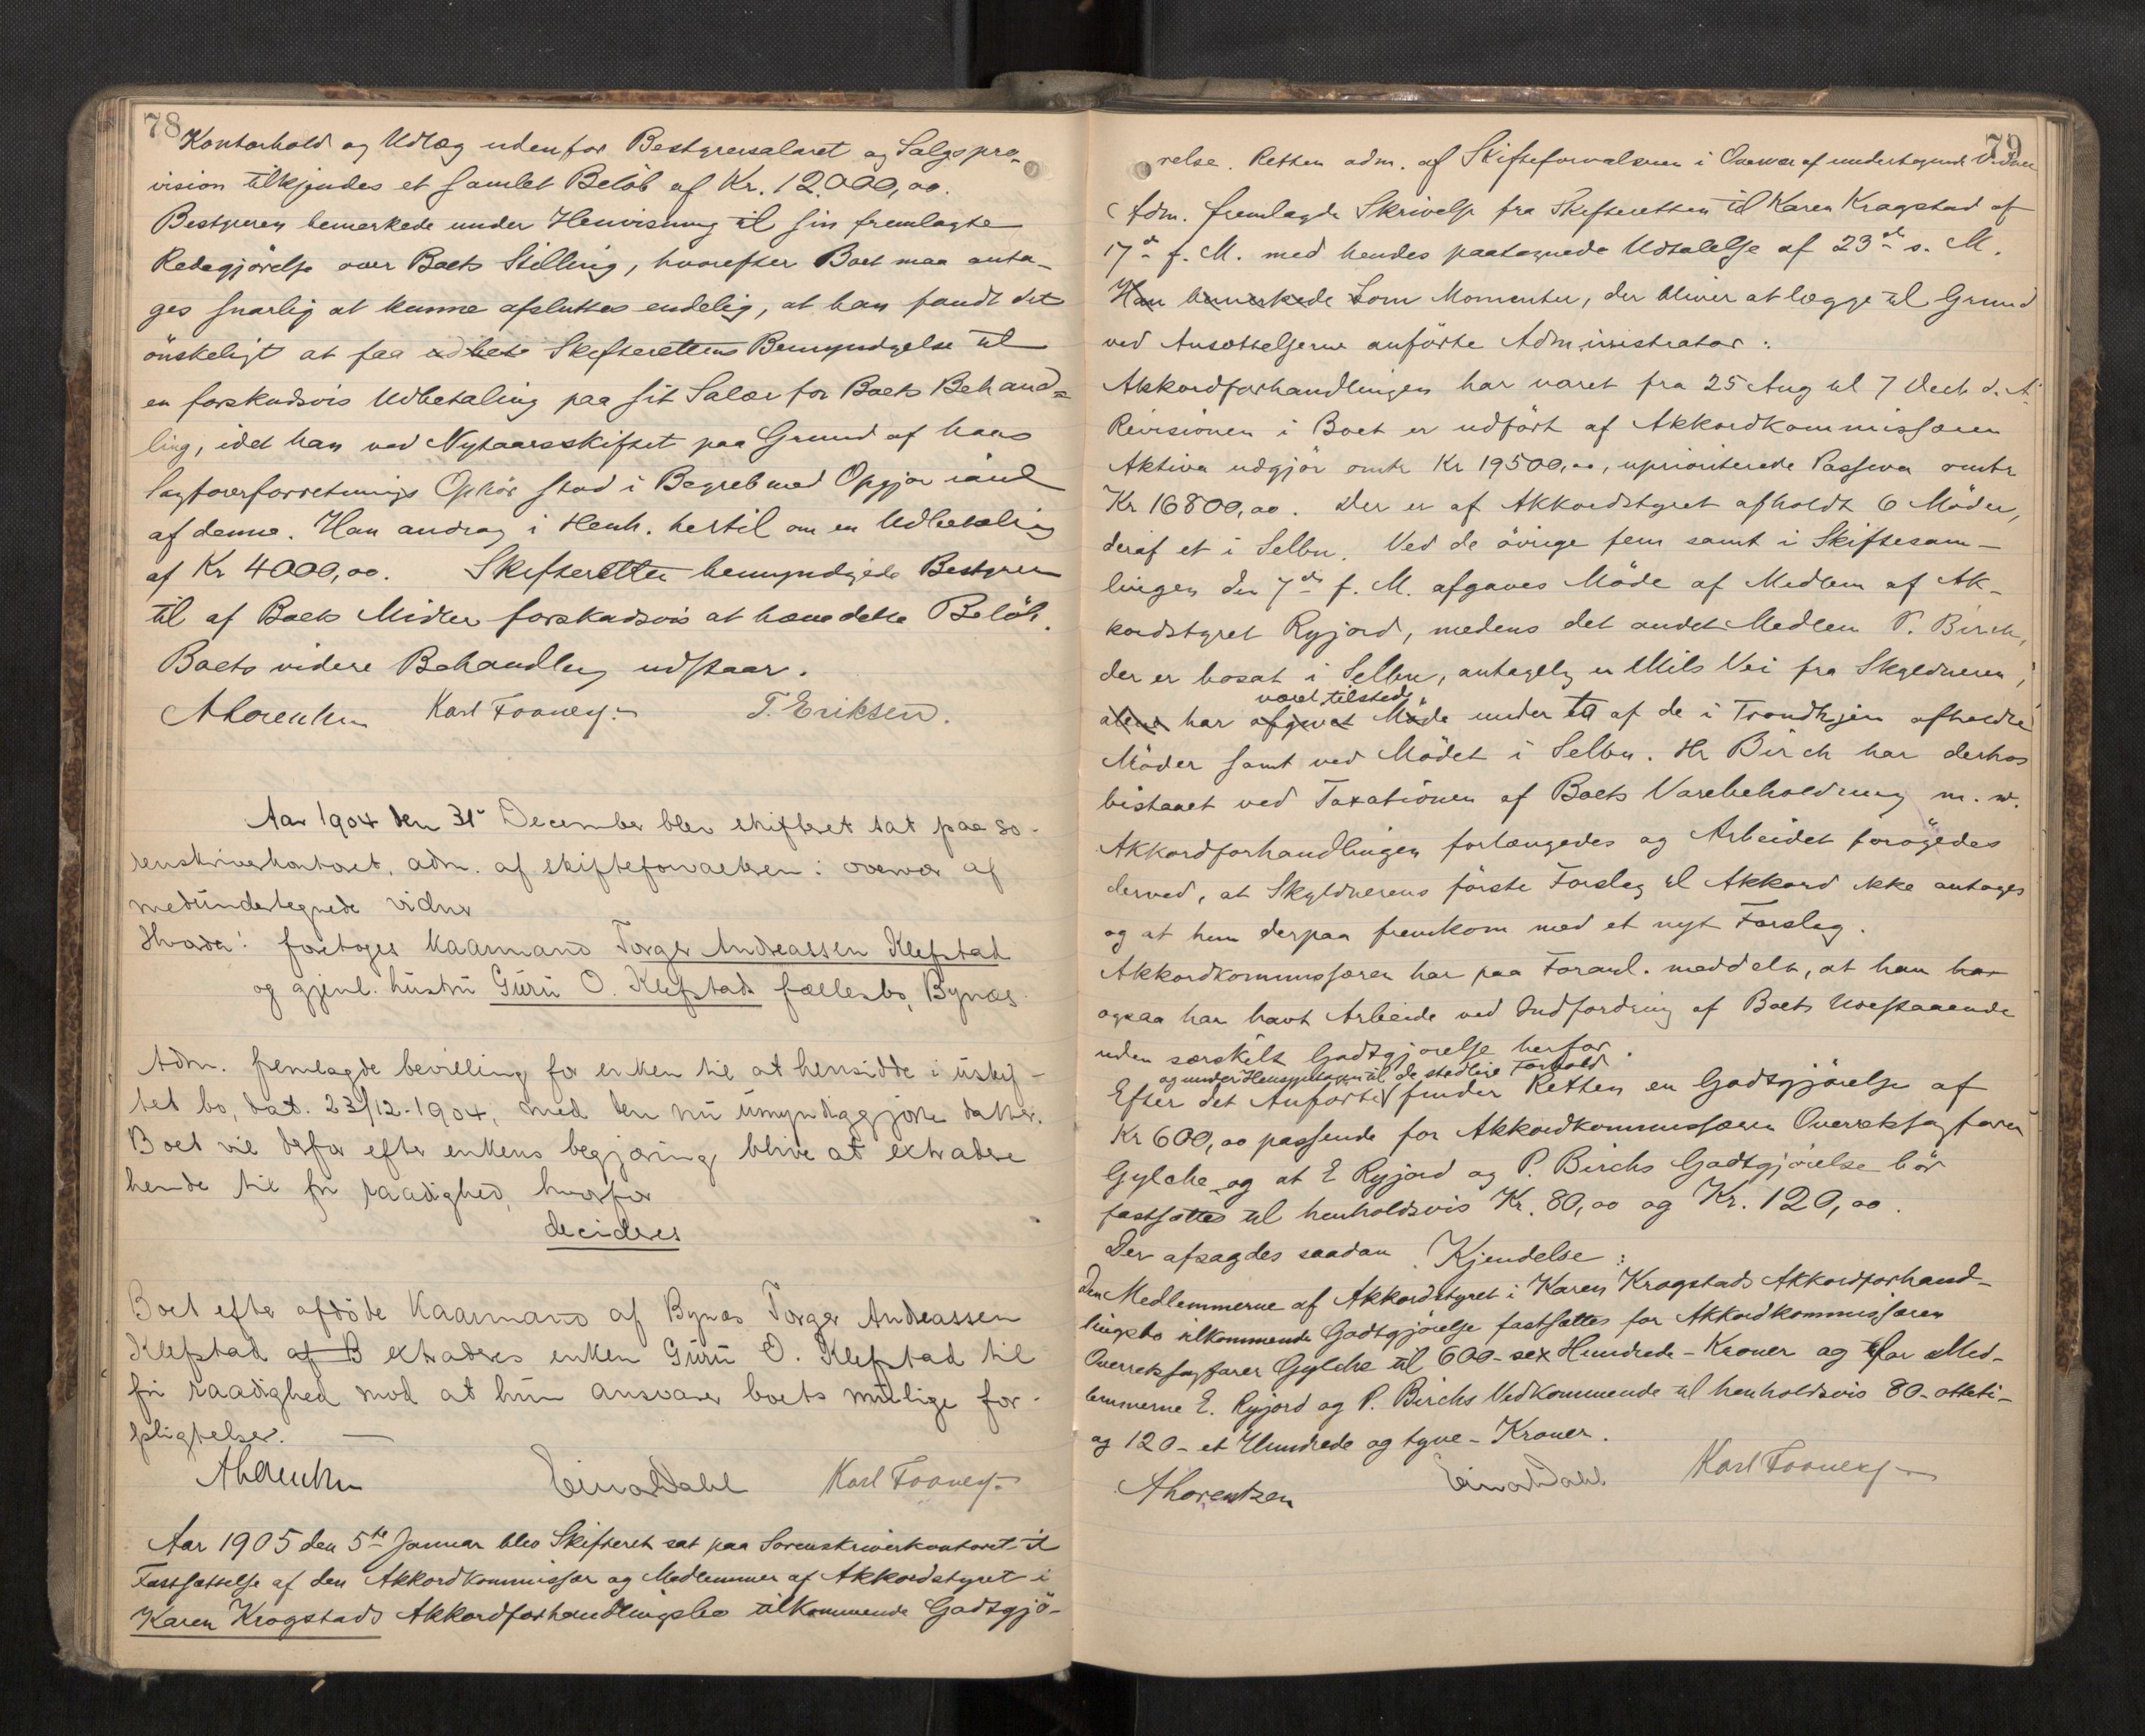 78
Kontorhold og Udlæg udenfor Bestyrersalæret og Salgspro-
vision tilkjendes et samlet Beløb af Kr. 12.000,00.
Bestyreren bemærkede under Henvisning til sin fremlagte
Redegjörelse over Boets Stilling, hvorefter Boet maa anta-
ges snarlig at kunne afsluttes endelig, at han fandt det
önskeligt at faa udbete Skifterettens Bemyndigelse til
en forskudsvis Udbetaling paa sit Salær for Boets Behand=
ling, idet han ved Nytaarsskiftet paa Grund af hans
Sagførerforretnings Ophör stod i Begreb med Opgjör
af denne. Han androg i Henh. hertil om en Udbetaling
af Kr 4000,00. Skifteretten bemyndigede Bestyreren
til af Boets Midler forskudsvis at hæve dette Belöb.
Boets videre Behandling udstaar.
ALorentzen Karl Foosnæs T. Eriksen.
Aar 1904 den 31. December blev skifteret sat paa so-
renskriverkontoret, adm. af skifteforvalteren i overvær af
medundertegnede vidner
Hvorda: foretoges Kaarmand Torger Andreassen Klefstad
og gjenl. hustru Guru O. Klefstads fællesbo, Bynæs.
Adm. fremlagde bevilling for enken til at hensidde i uskif-
tet bo, dat. 23/12-1904, med den nu umyndiggjorte datter.
Boet vil derfor efter enkens begjæring blive at extradere
hende til fri raadighed, hvorfor
decideres
Boet efter afdöde Kaarmand af Bynæs Torger Andreassen
Klefstad af B extraderes enken Guru O. Klefstad til
fri raadighed mod at hun ansvarer boets mulige for-
pligtelser.
ALorentzen Einar Dahl Karl Foosnæs
Aar 1905 den 5te Januar blev Skifteret sat paa Sorenskriverkontoret til
Fastsættelse af den Akkordkommissær og Medlemmer af Akkordstyret i
Karen Krogstads Akkordforhandlingsbo tilkommende Godtgjö-
79
relse. Retten adm. af Skifteforvalteren i Overvær af undertegnede Vidner
Adm. fremlagde Skrivelse fra Skifteretten til Karen Krogstad af
17de f. M. med hendes paategnede Udtalelse af 23de s. M.
Han bemærkede Som Momenter, der bliver at lægge til Grund
ved Ansættelserne anførte Administrator:
Akkordforhandlingen har varet fra 25 Aug til 7 Decb. d. A.
Revisionen i Boet er udfört af Akkordkommissæren
Aktiva udgjör omtr Kr 19500,00, uprioriterede Passiva omtr
Kr 16800,00. Der er af Akkordstyret afholdt 6 Möder,
deraf et i Selbu. Ved de övrige fem samt i Skiftesam-
lingen den 7de f. M. afgaves Möde af Medlem af Ak-
kordstyret Ryjord, medens det andet Medlem P. Birch,
der er bosat i Selbu, antagelig en Mils Vei fra Skyldneren,
været tilstede
alene har afgivet Möde under to af de i Trondhjem afholdte
Möder samt ved Mödet i Selbu. Hr Birch har derhos
bistaaet ved Taxationen af Boets Varebeholdning m. v.
Akkordforhandlingen forlængedes og Arbeidet forögedes
derved, at Skyldnerens förste Forslag til Akkord ikke antoges
og at hun derpaa fremkom med et nyt Forslag.
Akkordkommissæren har paa Foranl. meddelt, at han har
ogsaa har havt Arbeide ved Indfordring af Boets Udestaaende
uden særskilt Godtgjörelse herfor.
og under Hensyntagen til de stedlige Forhold
Efter det Anförte finder Retten en Godtgjörelse af
Kr 600,00 passende for Akkordkommissæren Overretssagförer
Gylche og at E Ryjord og P. Birchs Godtgjörelse bör
fastsættes til henholdsvis Kr. 80,00 og Kr. 120,00.
Der afsagdes saadan Kjendelse:
Den Medlemmerne af Akkordstyret i Karen Krogstads Akkordforhand-
lingsbo tilkommende Godtgjörelse fastsættes for Akkordkommissæren
Overretssagförer Gylche til 600-sex Hundrede-Kroner og for Med-
lemmerne E. Ryjord og P. Birchs Vedkommende til henholdsvis 80-otteti-
og 120-et Hundrede og tyve-Kroner.
ALorentzen Einar Dahl Karl Foosnæs